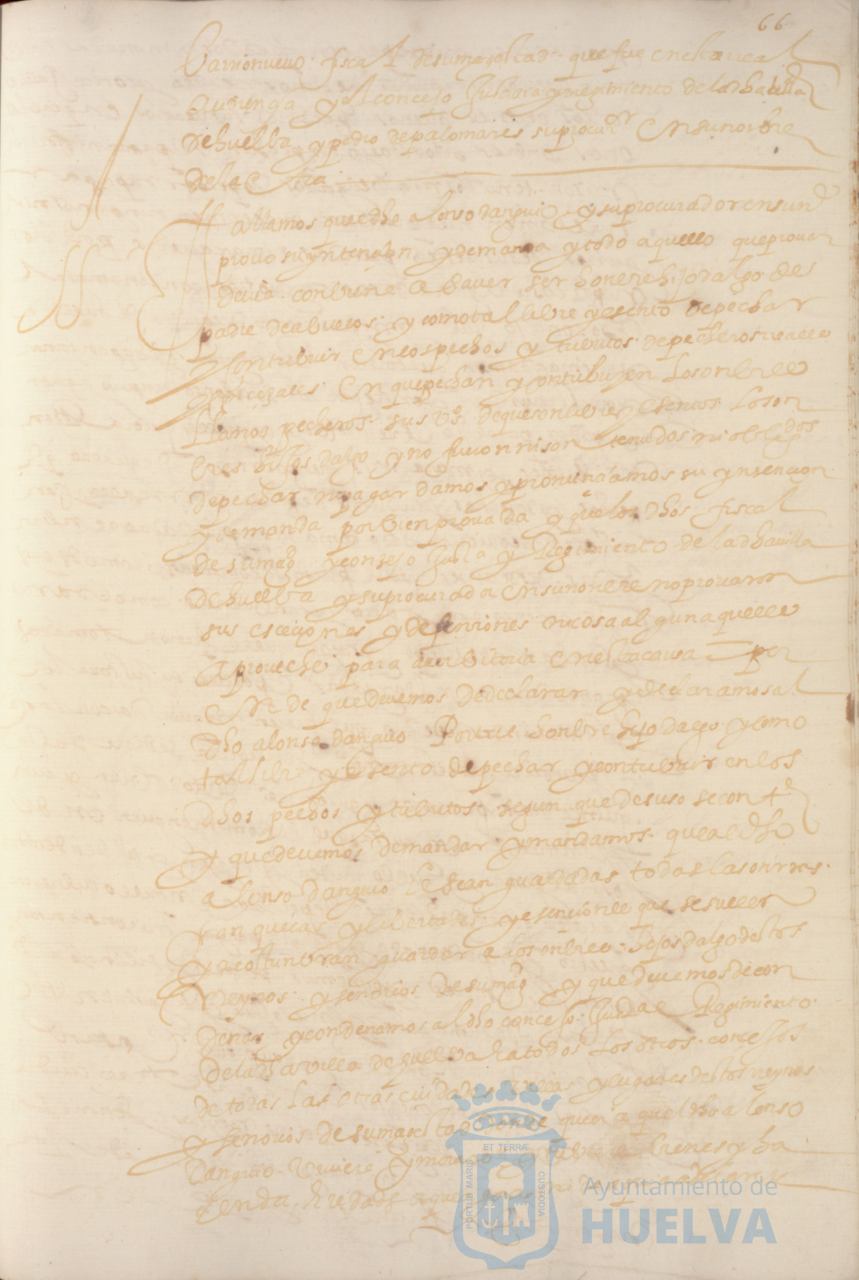 66
Barrionuevo fiscal de su magestad que fue en esta real
audiençia y el conçejo justiçia y regimiento de la dha villa
de huelba y pedro de palomares su procur en su nonbre
de la otra
Fallamos que el dho alonso danguio y su procurador en su ne
provo su yntençion y demanda y todo aquello que provar
devia conbiene a saver ser honbre hijodalgo de
padre de abuelos y como tal libre y esento de pechar
y contribuir en los pechos y tributos de pecheros reales
y conçejales en que pechan y contribuyen los onbres
llanos pecheros sus vs de que son libres y esentos los on
bres hijos dalgo y no fueron ni son tenudos ni obligados
de pechar ni pagar damos y pronunçiamos su yntençion
y demanda por bien provada y que los dhos fiscal
de su magd y consejo justa y regimiento de la dha villa
de huelba y su procurador en su nonbre no provaron
sus eseçiones y defensiones ni cosa alguna que les
aproveche para aver vitoria en esta causa por
ende que devemos de declarar y declaramos al
dho alonso danguio por ser honbre hijodalgo y como
tal libre y esento de pechar y contribuir en los
dhos pechos y tributos segun que de suso se conte
y que devemos demandar y mandamos que al dho
alonso danguio le sean guardadas todas las onrras
franqueças y libertades y esençiones que se suelen
y acostunbran guardar a los onbres hijos dalgo destos
reynos y señorios de su magd y que devemos de con
denar y condenamos al dho conçejo justiçia e regimiento
de la dha villa de huelva e a todos los otros conçejos
de todas las otras çiudades villas y lugares destos reynos
y señorios de su magestad donde quier a que el dho alonso
danguio viviere y morare e tubiere bienes y ha
zienda heredada
PORTUS MARIS
ET TERRÆ
CUSTODIA
Ayuntamiento de
HUELVA